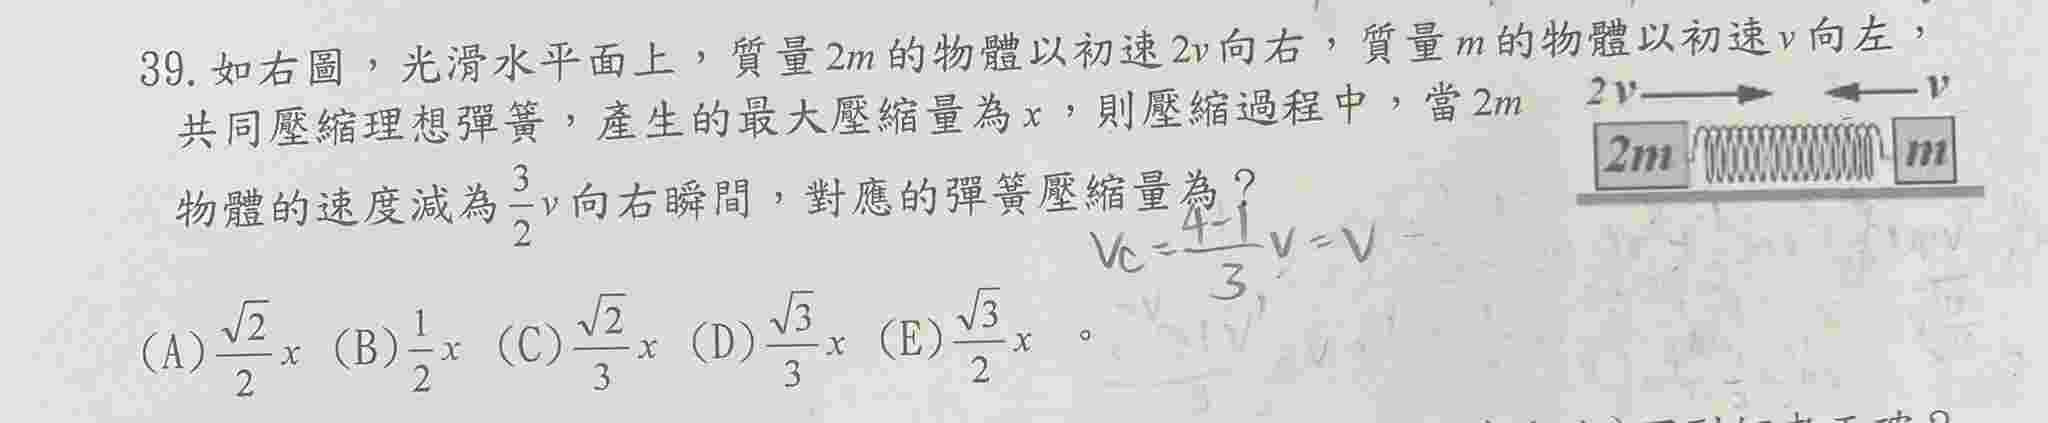 39. 如右圖，光滑水平面上，質量 2m 的物體以初速 2v 向右，質量 m 的物體以初速 v 向左，
共同壓縮理想彈簧，產生的最大壓縮量為 x，則壓縮過程中，當 2m
物體的速度減為 3/2 v 向右瞬間，對應的彈簧壓縮量為？
2v v
2m m
Vc = (4-1)/3 V = V
(A) √2/2 x (B) 1/2 x (C) √2/3 x (D) √3/3 x (E) √3/2 x 。